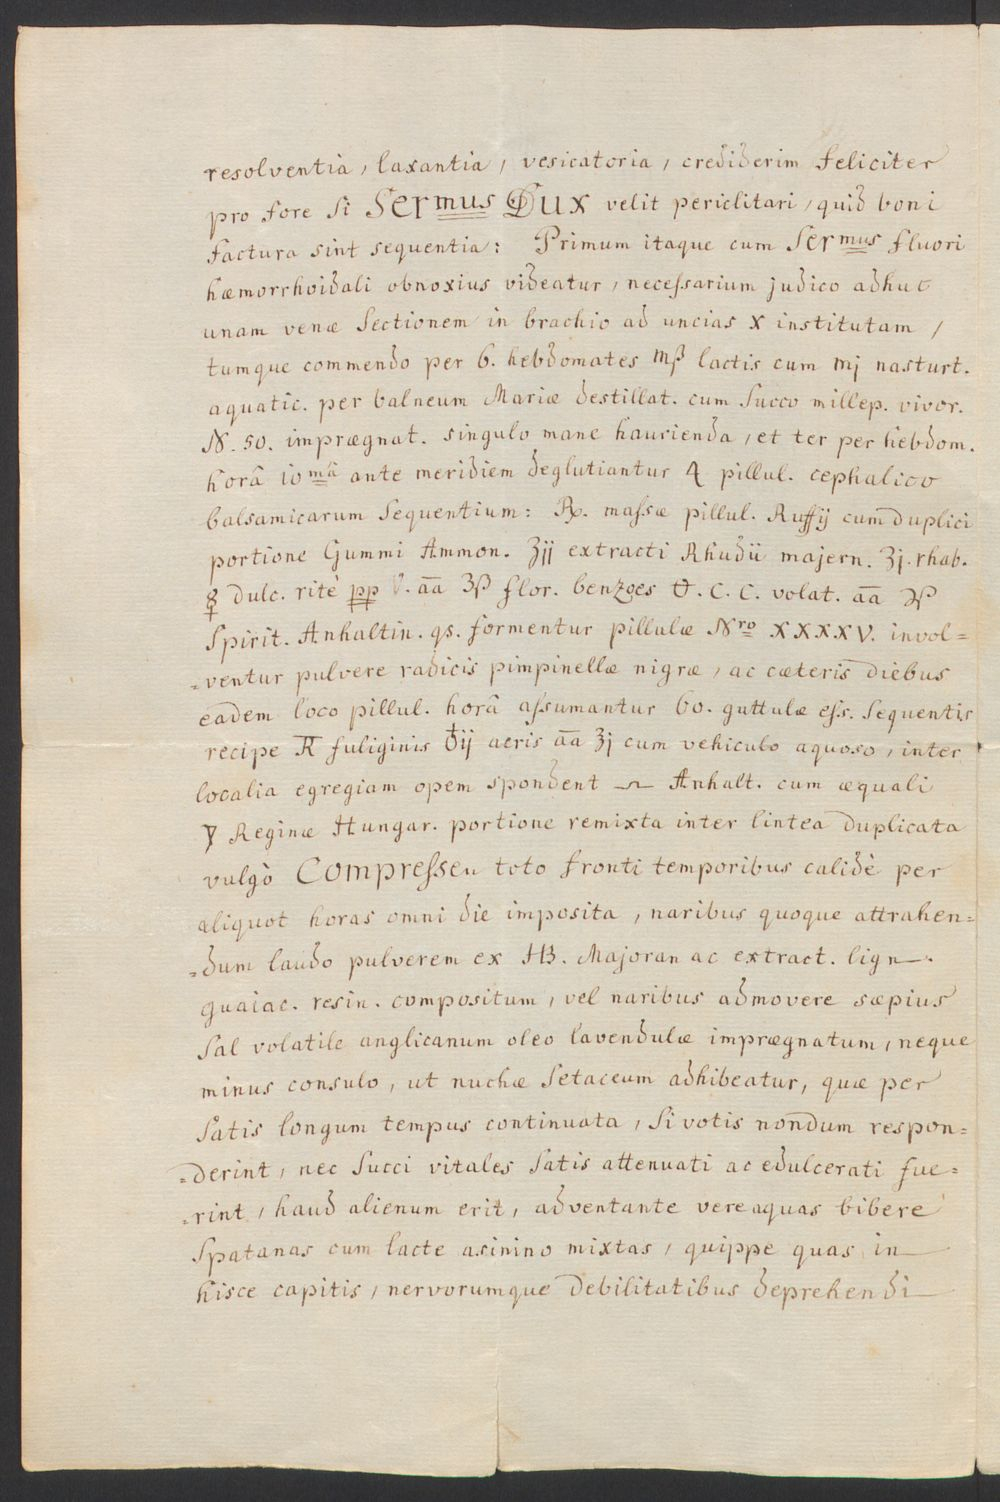 resolventia, laxantia, vesicatoria, crediderim feliciter
pro fore si Sermus Dux velit periclitari, quid boni
factura sint sequentia: Primum itaque cum Sermus fluori
hæmorrhoidali obnoxius videatur, necessarium judico adhuc
unam venæ Sectionem in brachio ad uncias X institutam,
tumque commendo per 6. hebdomates Mß lactis cum Mj nasturt.
aquatic. per balneum Mariæ destillat. cum Succo millep. vivor.
N. 50. imprægnat. singulo mane haurienda, et ter per hebdom.
horâ 10mâ ante meridiem deglutiantur 4 pillul. cephalico
balsamicarum Sequentium: Rp. massæ pillul. Ruffij cum duplici
portione Gummi Ammon. ʒjj extracti Rhudii majern. ʒj. rhab.
☿ dulc. ritè pp āā ʒß flor. benzoes C. C. volat. āā ℈ß
Spirit. Anhaltin. qs. formentur pillulæ Nro XXXXV. invol=
=ventur pulvere radicis pimpinellæ nigræ, ac cæteris diebus
eadem loco pillul. horâ assumantur 60. guttulæ ess. Sequentis
recipe fuliginis ij aeris āā ʒj cum vehiculo aquoso, inter
localia egregiam opem spondent Anhalt. cum æquali
Reginæ Hungar. portione remixta inter lintea duplicata
vulgò Compressen toto fronti temporibus calidè per
aliquot horas omni die imposita, naribus quoque attrahen=
=dum laudo pulverem ex HB. Majoran ac extract. lign.
guaiac. resin. compositum, vel naribus admovere sæpius
Sal volatile anglicanum oleo lavendulæ imprægnatum, neque
minus consulo, ut nuchæ Setaceum adhibeatur, quæ per
Satis longum tempus continuata, Si votis nondum respon=
=derint, nec Succi vitales Satis attenuati ac edulcerati fue=
=rint, haud alienum erit, adventante vere aquas bibere
Spatanas cum lacte asinino mixtas, quippe quas in
hisce capitis, nervorumque debilitatibus deprehendi